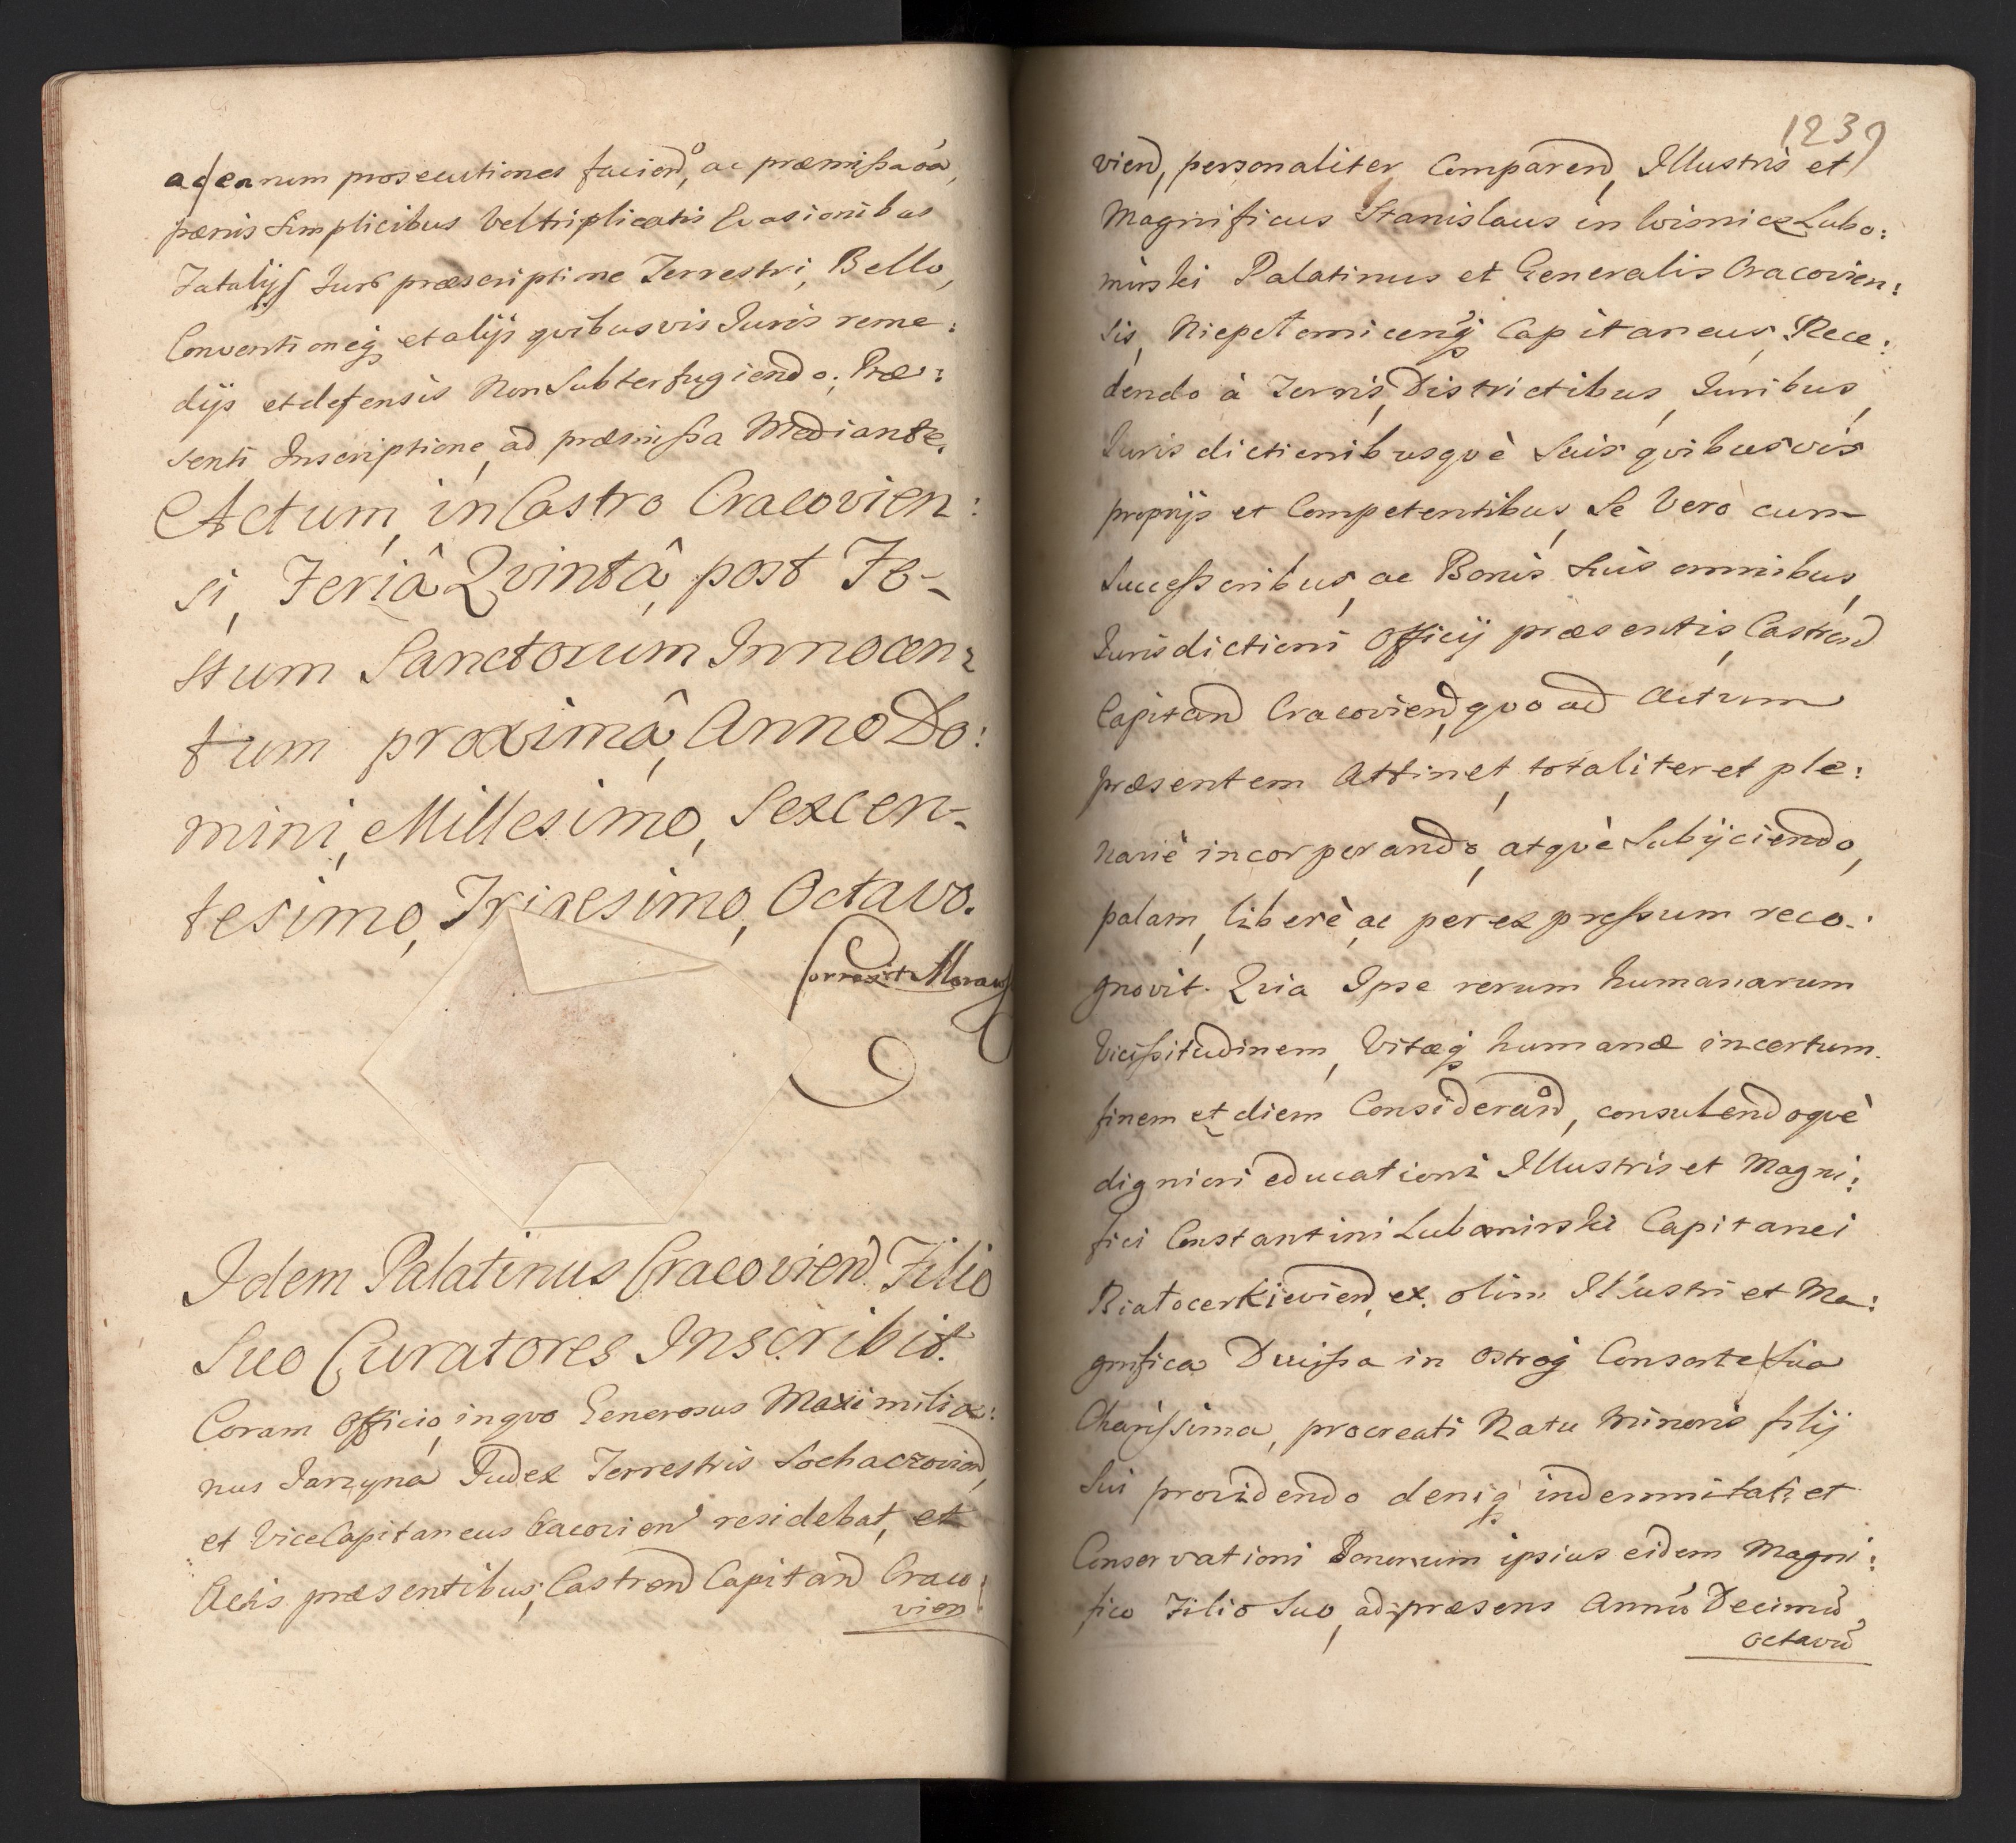 ad earum prosecutiones faciend, ac præmissa oa,
pænis simplicibus vel triplicatis Evasionibus
Fatalijs Juris præscriptione Terrestri, Bello,
Conventioneq et alijs qvibusvis Juris reme:
dijs et defensis Non Subterfugiendo; Præ:
senti Inscriptione ad præmissa Mediante.
Actum in Castro Cracovien:
si, Feriâ Qvintâ post Fe-
stum Sanctorum Innocen:
tum proximâ, Anno Do:
mini, Millesimo, Sexcen-
tesimo, Trigesimo, Octavo.
Correxit
Idem Palatinus Cracoviend Filio
Suo Curatores Inscribit.
Coram Officio, in qvo Generosus Maximilia:
nus Jarzyna Judex Terrestris Sochaczoviend,
et ViceCapitaneus Cracoviend residebat, et
Actis præsentibus, Castrend Capitand Craco:
vien
1239
viend, personaliter Comparend, Illustris et
Magnificus Stanislaus in Wisnicz Lubo:
mirski Palatinus et Generalis Cracovien:
sis, Niepołomicenq Capitaneus, Rece:
dendo à Terris, Districtibus, Juribus,
Jurisdictionibusqvè Suis qvibusvis
proprijs et Competentibus, Se Verò cum
Successoribus, ac Bonis Suis omnibus,
Jurisdictioni Officij præsentis, Castrend
Capitand Cracoviend, qvo ad Actum
præsentem Attinet, totaliter et ple:
nariè incorporando, atqvè Subijciendo,
palam, liberè, ac per expressum reco:
gnovit. Qvia Ipse rerum humanarum
Vicissitudinem, Vitæq humanæ incertum
finem et diem Considerand, consulendoqvè
digniori educationi Illustris et Magni:
fici Constantini Lubomirski Capitanei
Białocerkieviend, ex olim Illustri et Ma:
gnifica Ducissa in Ostrog Consorte Sua
Charissima, procreati Natu Minoris filij
Sui providendo deniq indemnitati et
Conservationi Bonorum ipsius eidem Magni:
fico Filio Suo, ad præsens Annũ Decimũ
octavũ